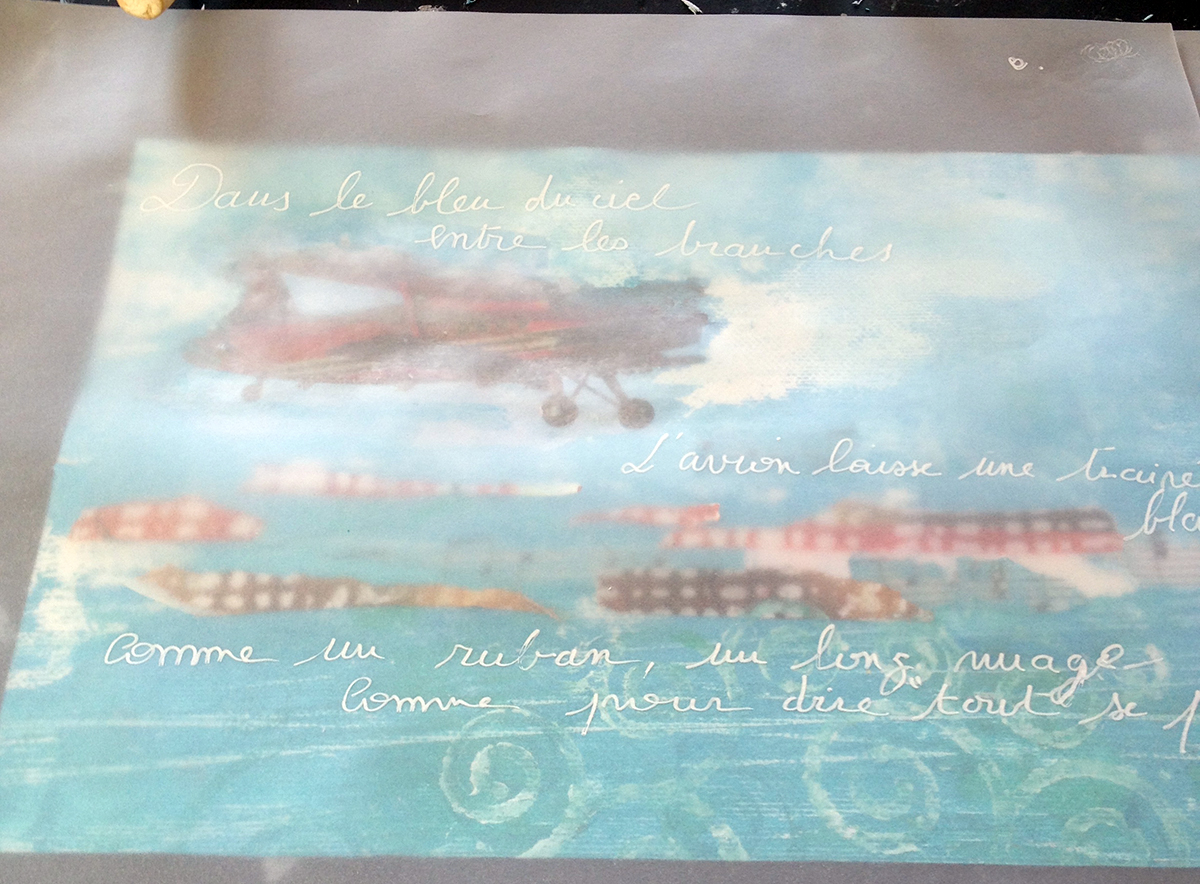 Dans le bleu du ciel
entre les branches
L'avion laisse une traîné
bla
comme un ruban, un long nuage
Comme pour dire "tout se p